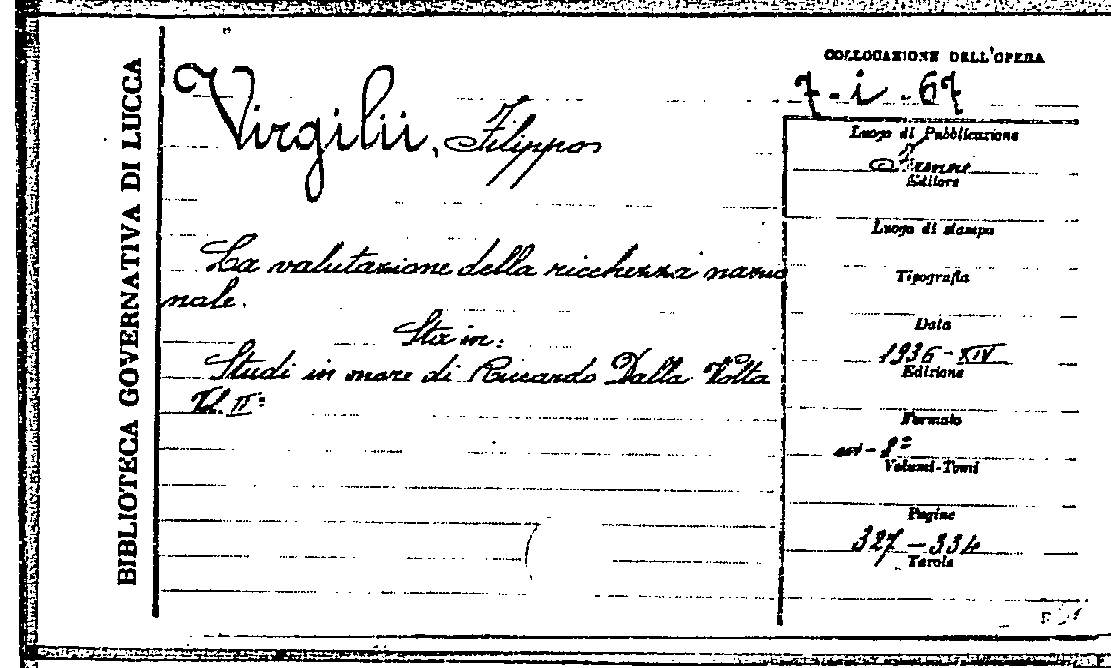 BIBLIOTECA GOVERNATIVA DI LUCCA
Virgilii, Filippo
La valutazione della ricchezza nazio
nale.
Sta in:
Studi in onore di Riccardo Dalla Volta
Vol. II°
COLLOCAZIONE DELL'OPERA
7-i-67
Luogo di Pubblicazione
Firenze
Editore
Luogo di stampa
Tipografia
Data
1936-XIV
Edizione
Formato
in-8°
Volumi-Tomi
Pagine
327-334
Tavole